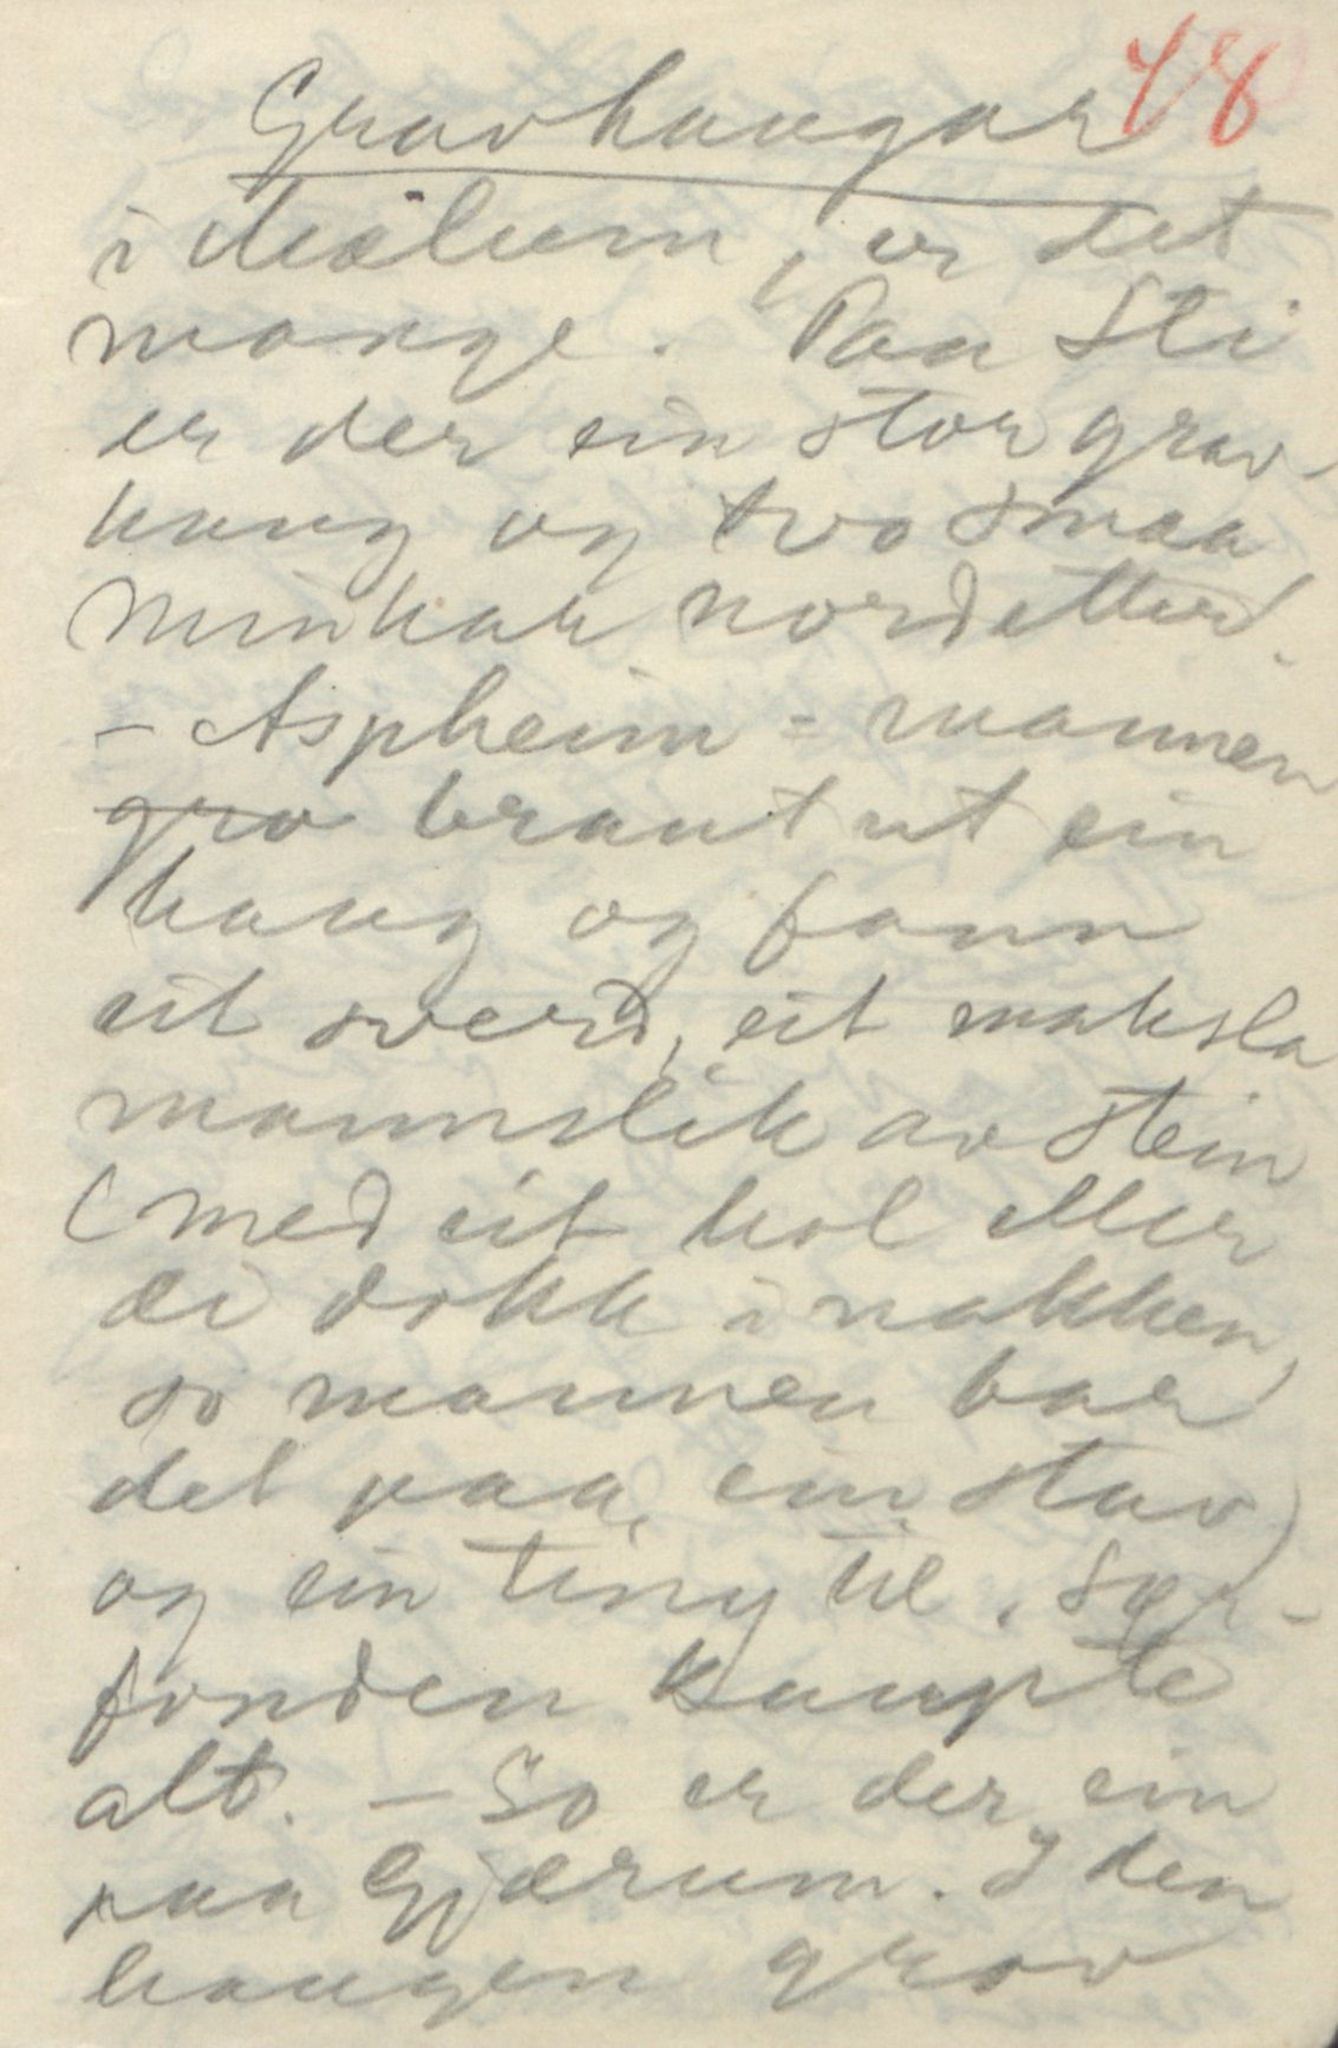 78
Gravhaugar
i Meålum, er det
mange. Paa Sti
er der ein stor grav
haug og tvo smaa
minkar nordetter.
- Aspheim-mannen
gro braut ut ein
haug og fann
eit sverd, eit
mannslik av stein
(med eit hol eller
ei dokk i nakken,
so mannen bar
det paa ein stav)
og ein ting til.
fonden kaupte
alt. - So er der ein
paa Gjærum. I den
haugen grov